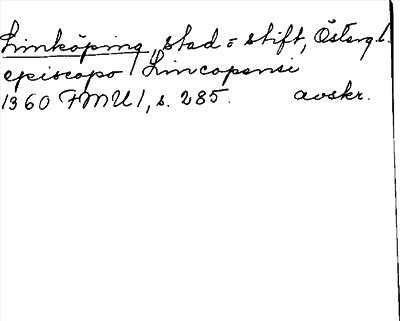 Linköping, stad o stift, Östergl.
episcopo / Lincopensi
1360 FMU 1, s. 285. avskr.